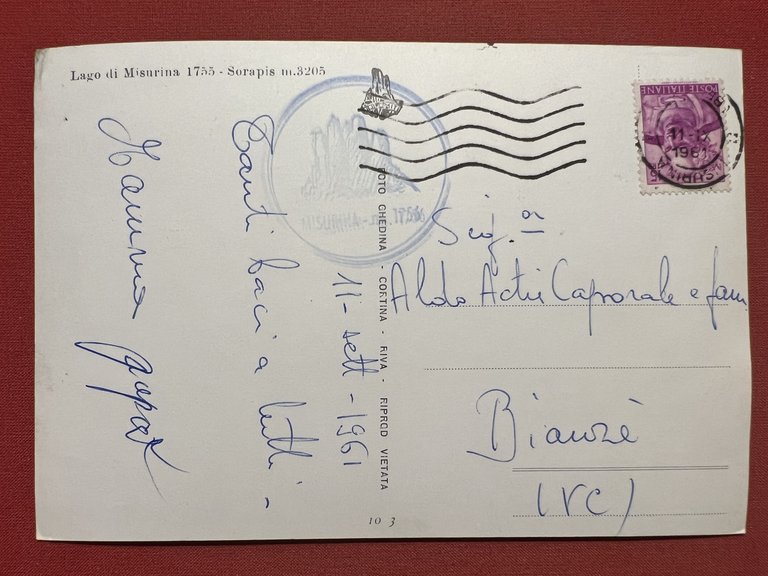 Lago di Misurina 1755 - Sorapis m.3205
POSTE ITALIANE
11-
1961
MISURINA
11 - sett - 1961
Tanti baci a tutti -
Mamma papà
FOTO GHEDINA - CORTINA - RIVA - RIPROD VIETATA
Sig.or
Aldo Caporale e fam
Bianzè
(VC)
10 3